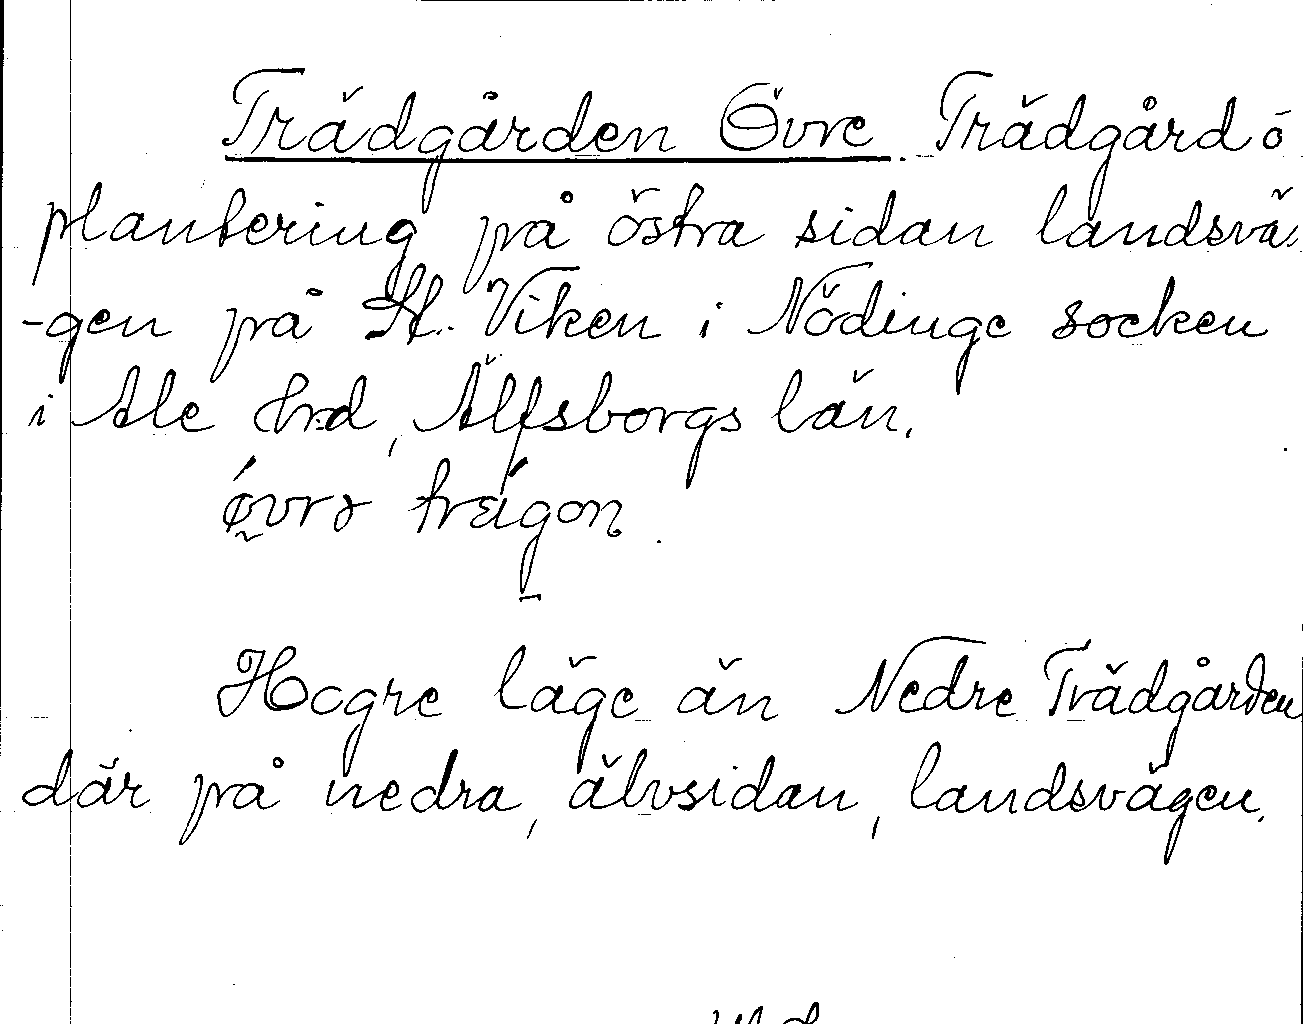 Trädgården Övre. Trädgård ó
plantering på östra sidan landsvä
-gen på St. Viken i Nödinge socken
i Ale hrd, Älfsborgs län.
Högre läge än Nedre Trädgården
där på nedra, älvsidan, landsvägen.